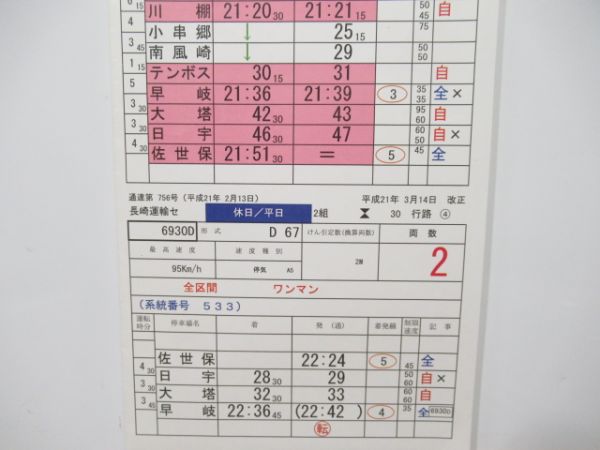 6 15 川棚 21:20 30 21:21 15 50 45 自
4 小串郷 ↓ 25 15 75
3 45 南風崎 ↓ 29 50 50
1 15 テンボス 30 15 31 自
5 早岐 21:36 21:39 3 35 35 全×
4 大塔 42 30 43 95 60 自
3 30 日宇 46 30 47 60 50 自×
4 30 佐世保 21:51 30 = 5 45 全
通達第 756号 (平成21年 2月13日) 平成21年 3月14日 改正
長崎運輸セ 休日/平日 2組 30 行路 ④
6930D 形式 D 67 けん引定数(換算両数) 両数
最高速度 速度種別 2M 2
95Km/h 停気 A5
全区間 ワンマン
(系統番号 533)
運転時分 停車場名 着 発(通) 着発線 制限速度 記事
佐世保 22:24 5 全
4 30 日宇 28 30 29 45 50 60 自×
3 30 大塔 32 30 33 60 60 自
3 45 早岐 22:36 45 (22:42 ) 4 35 全 6930D
転